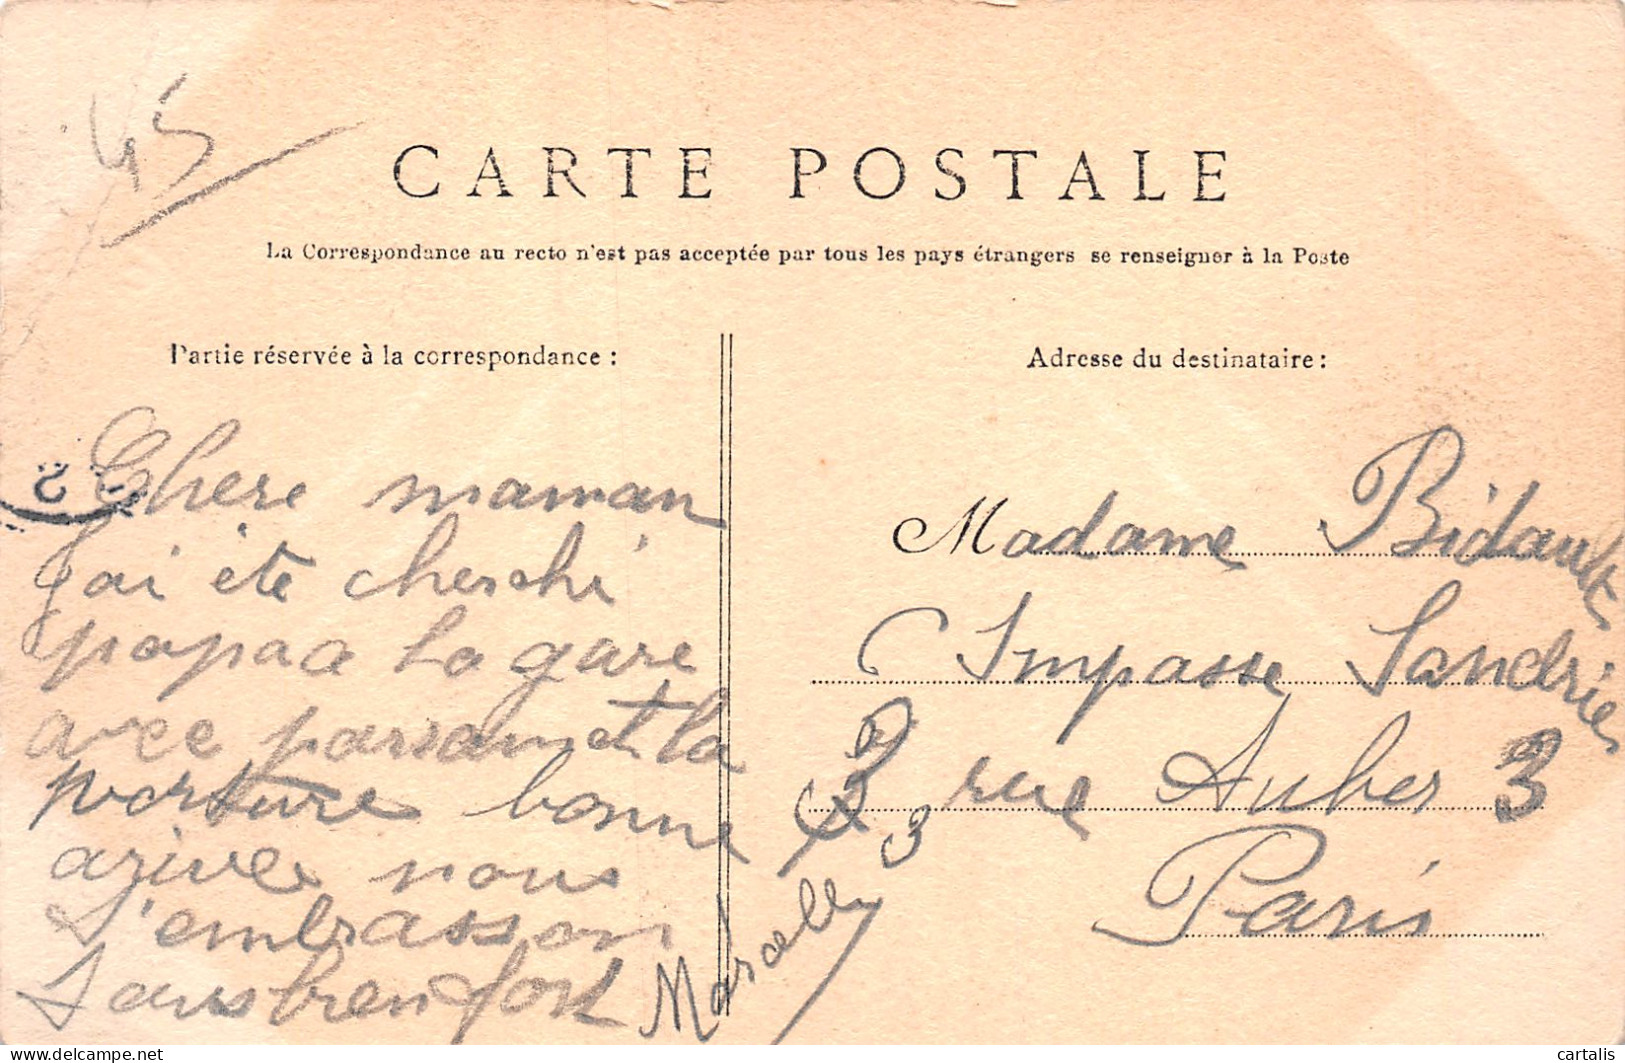 45
CARTE POSTALE
La Correspondance au recto n'est pas acceptée par tous les pays étrangers se renseigner à la Poste
Partie réservée à la correspondance :
Chere maman
J'ai été cherché
papa a la gare
avec parsan et la
vorture bonne
arivee nous
s'embrasson
tous bien fort Marcelle
Adresse du destinataire :
Madame Bidault
Impasse Sandrier
3 3 rue Auber 3
Paris
cartalis delcampe.net